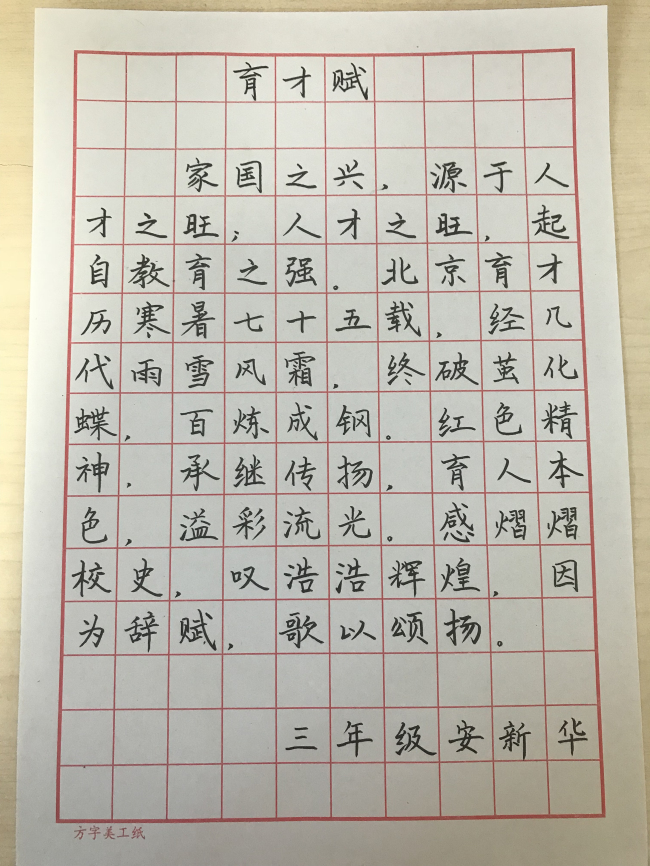 育才赋
家国之兴，源于人
才之旺；人才之旺，起
自教育之强。北京育才
历寒暑七十五载，经几
代雨雪风霜，终破茧化
蝶，百炼成钢。红色精
神，承继传扬，育人本
色，溢彩流光。感熠熠
校史，叹浩浩辉煌，因
为辞赋，歌以颂扬。
三年级安新华
方字美工纸